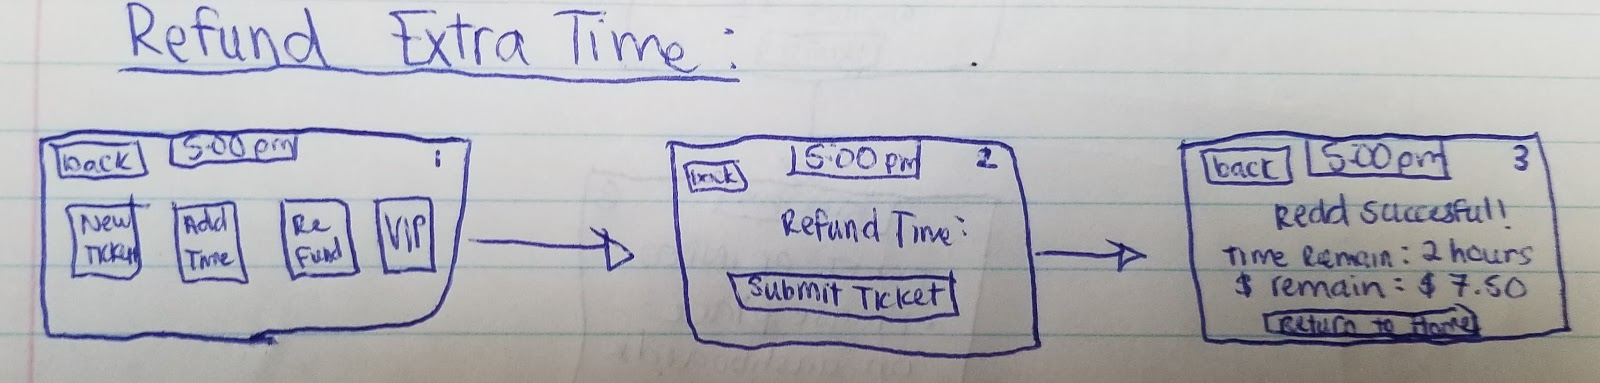 Refund Extra Time:
back 5:00 pm 1
New Ticket
Add Time
Re fund
VIP
back 5:00 pm 2
Refund Time:
Submit Ticket
back 5:00 pm 3
Redd Succesful!
Time Remain: 2 hours
$ remain: $ 7.50
Return to Home